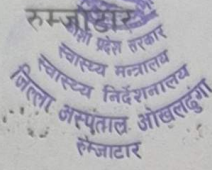 रुम्जाटार
प्रदेश सरकार
स्वास्थ्य मन्त्रालय
स्वास्थ्य निर्देशनालय
जिल्ला अस्पताल ओखलढुंगा
रुम्जाटार